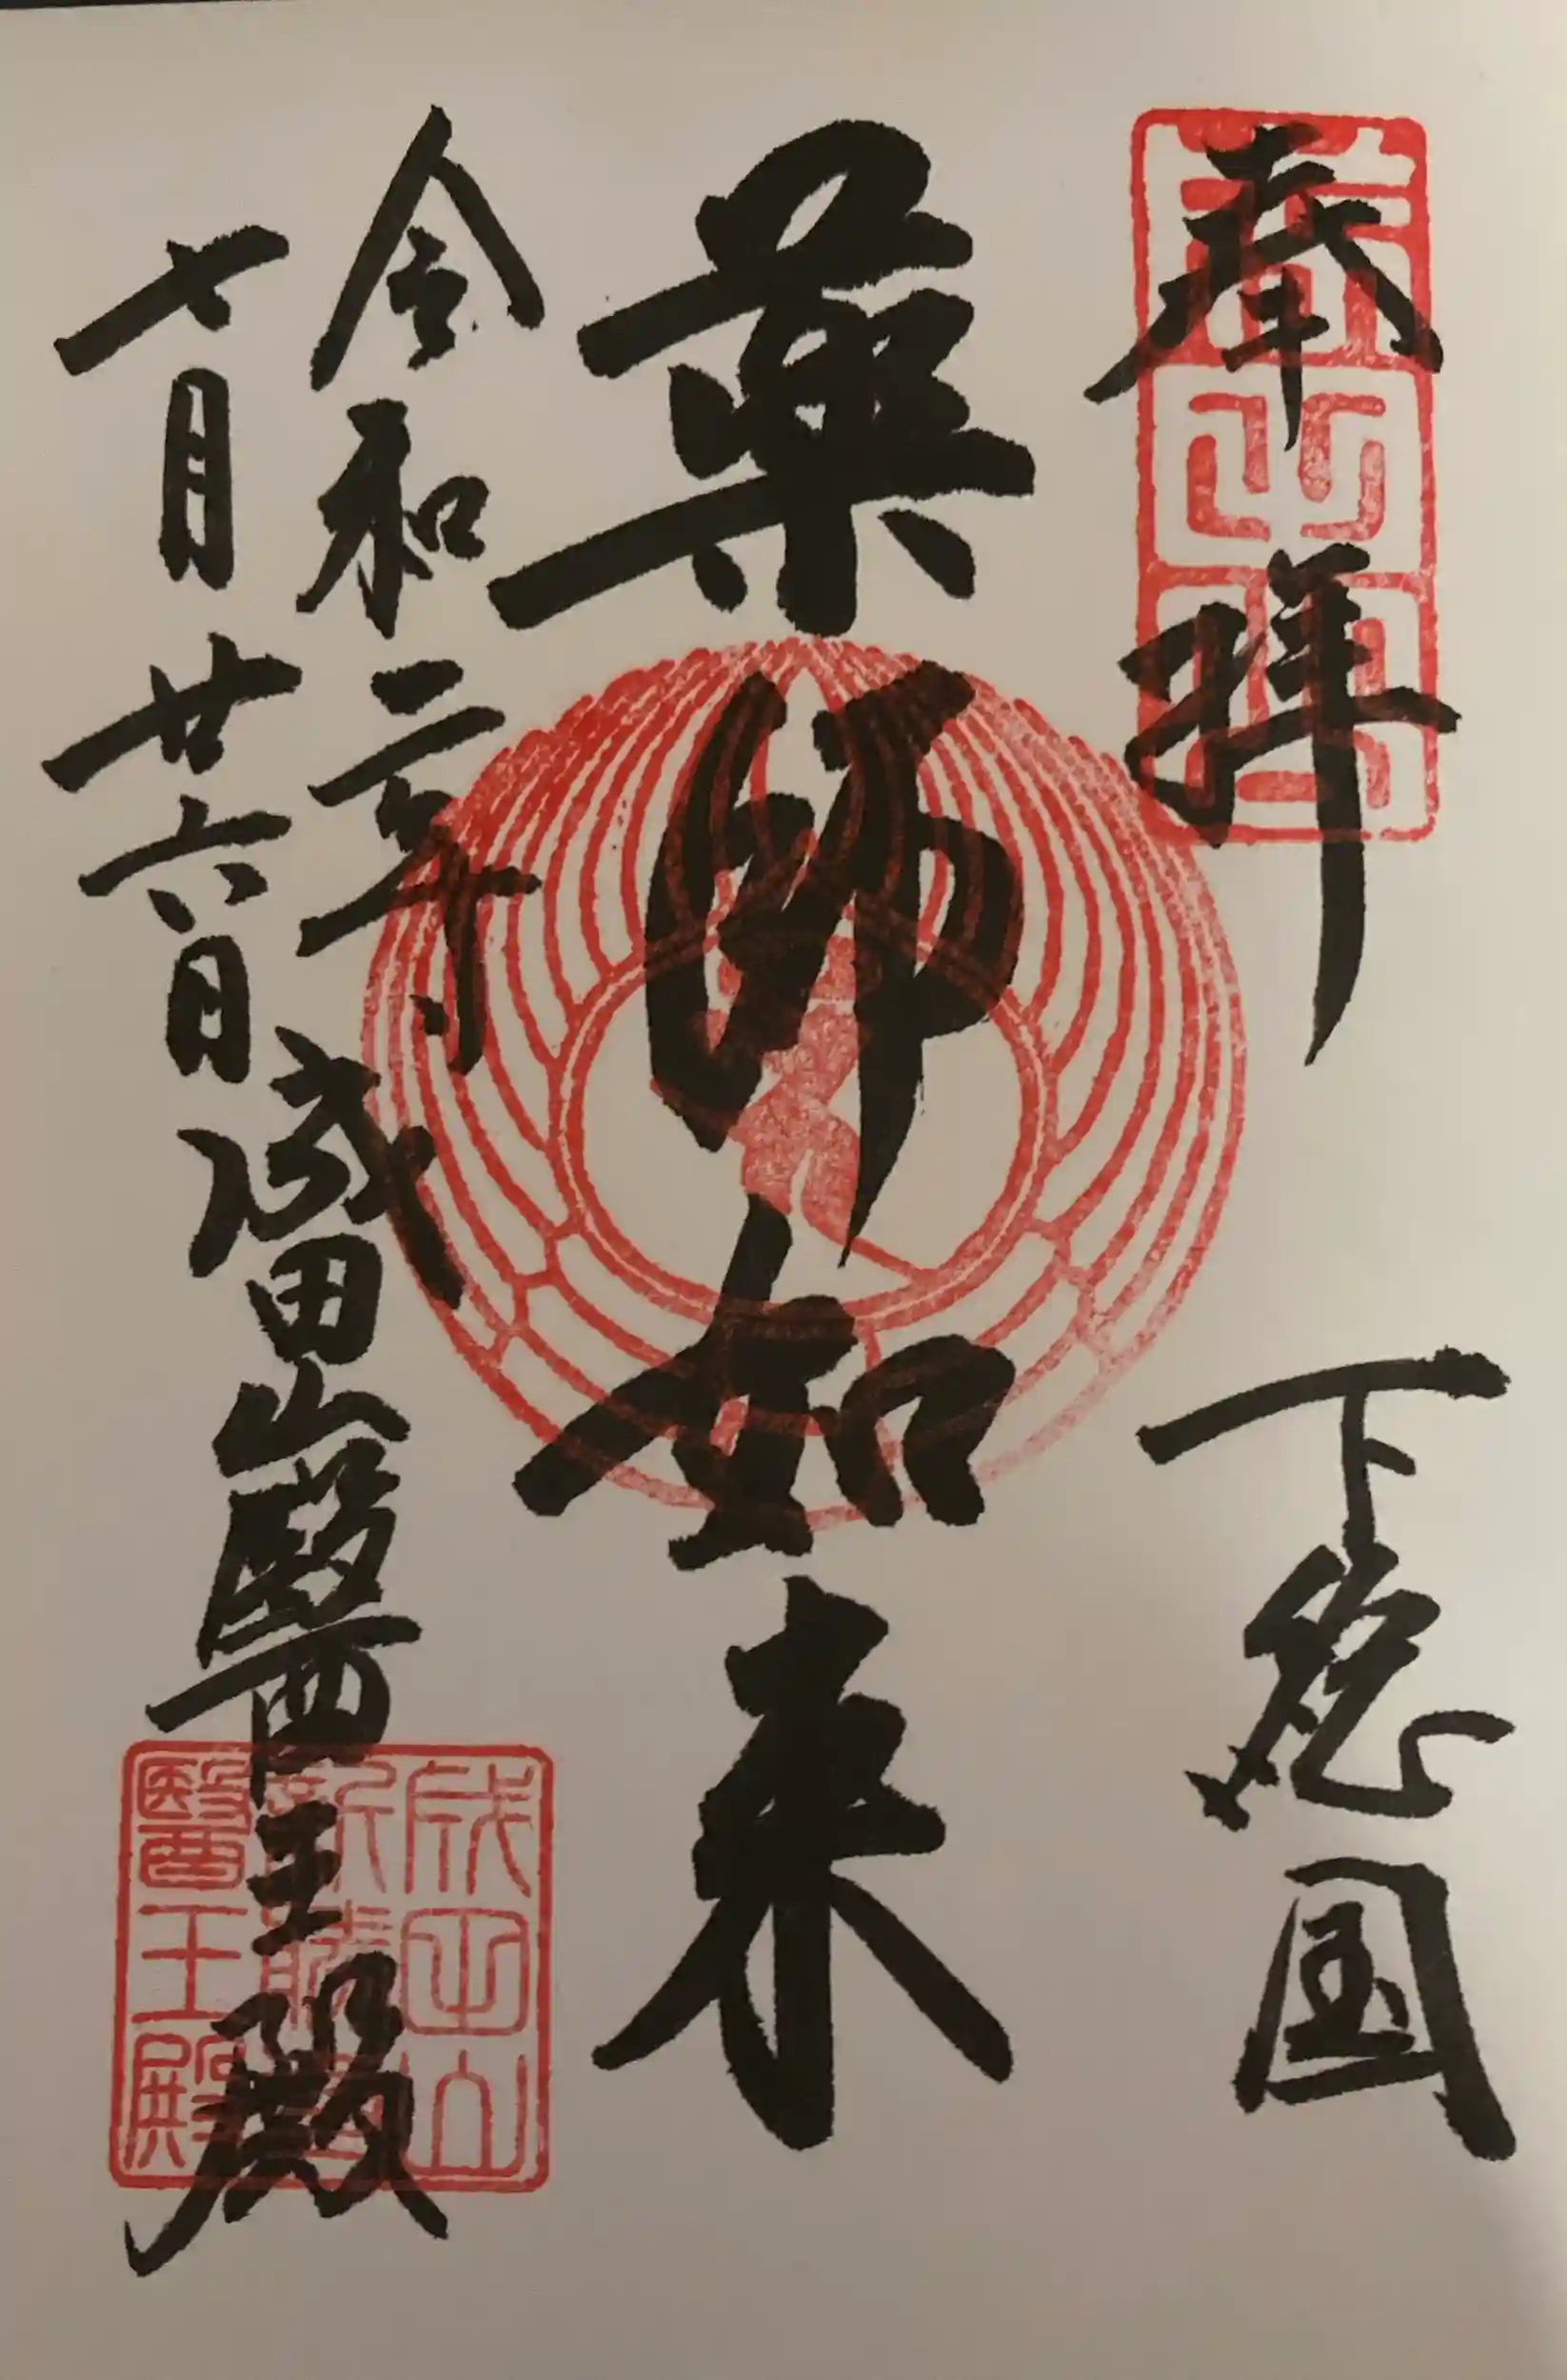 奉拝 下総国
薬師如来
令和二年
七月廿六日
成田山醫王殿
成田山
新勝寺
醫王殿